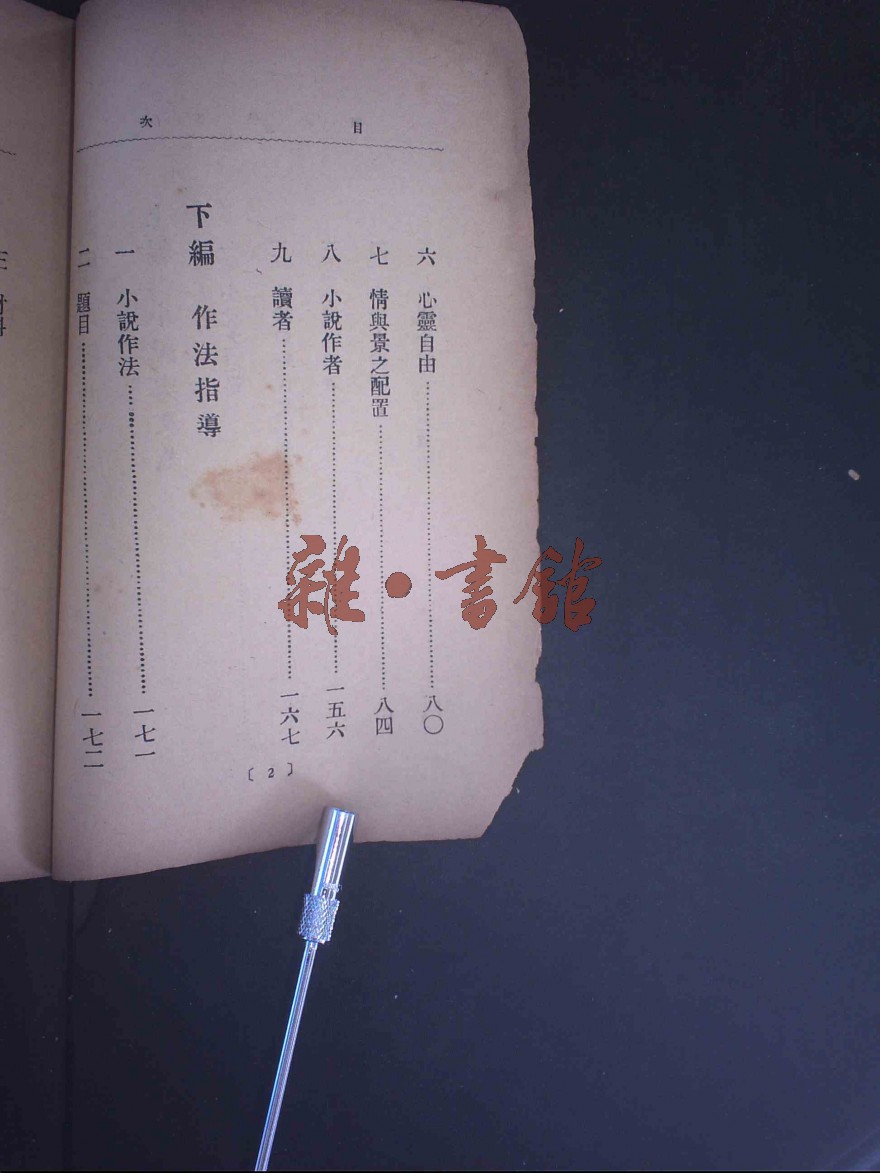 目次
六 心靈自由…………八〇
七 情與景之配置…………八四
八 小說作者…………一五六
九 讀者…………一六七
下編 作法指導
一 小說作法…………一七一
二 題目…………一七二
〔2〕
雜·書館